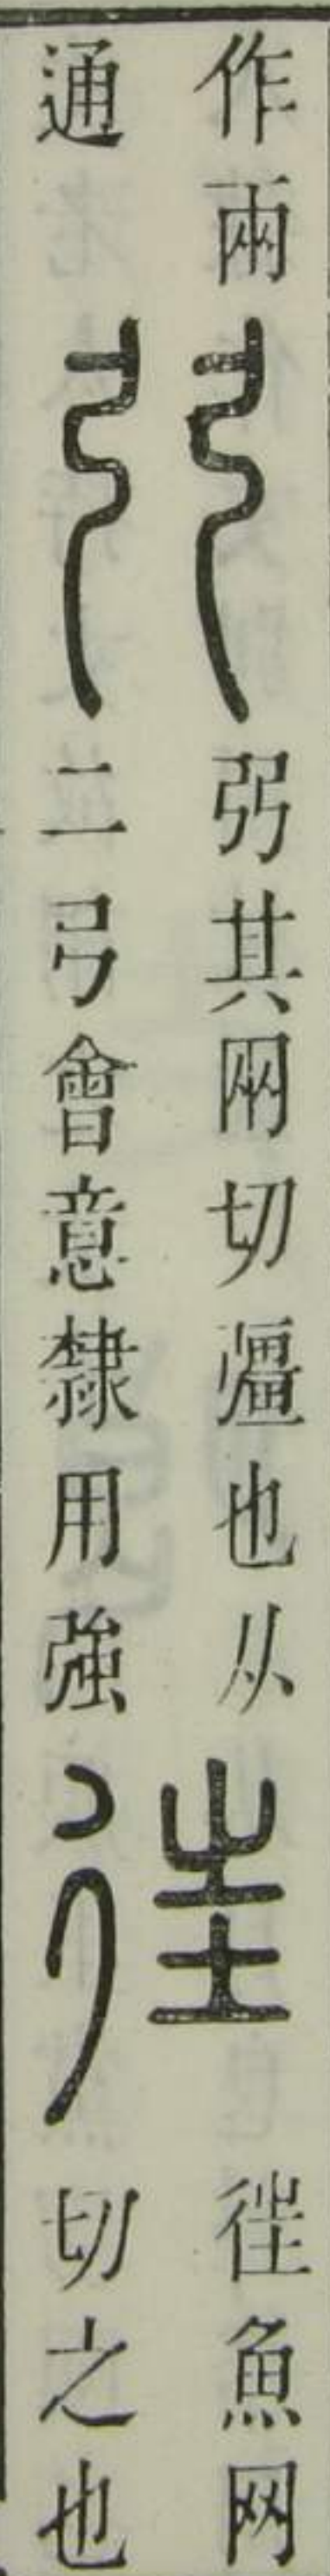 作兩
通
弜
弜其㒳切彊也从
二弓會意隸用強
徃
徃魚网
切之也